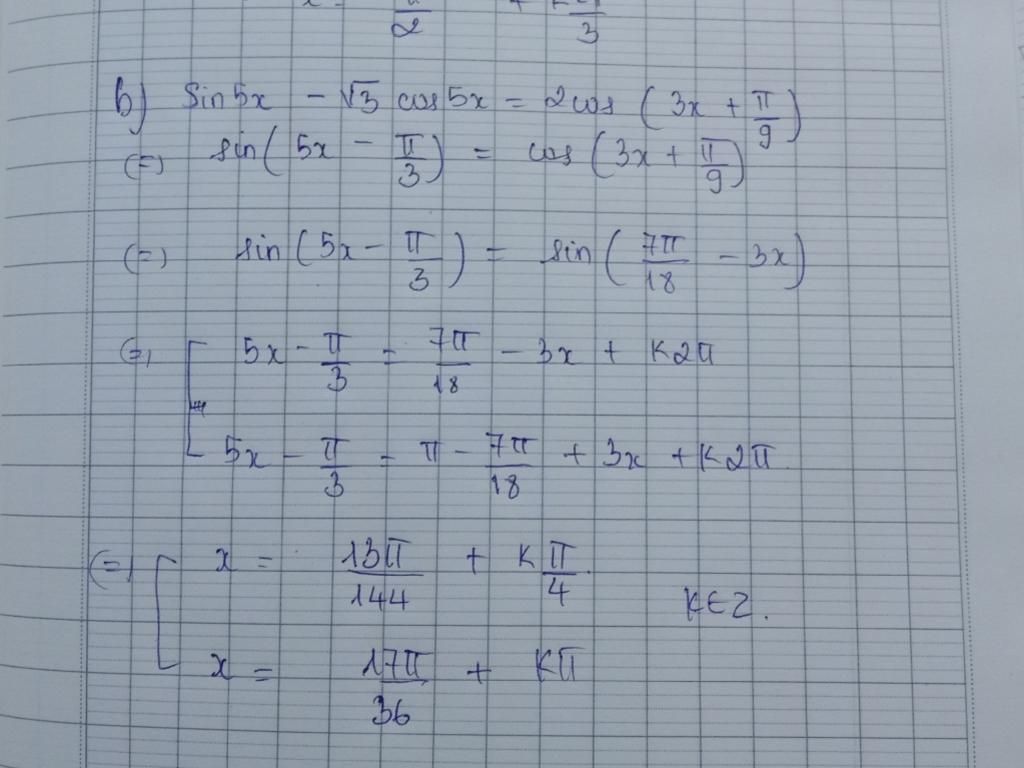 π/2 kπ/3
b) sin5x - √3 cos5x = 2cos (3x + π/9)
(=) sin(5x - π/3) = cos(3x + π/9)
(=) sin(5x - π/3) = sin(7π/18 - 3x)
(=) [ 5x - π/3 = 7π/18 - 3x + k2π
5x - π/3 = π - 7π/18 + 3x + k2π
(=) [ x = 13π/144 + kπ/4
k∈Z.
x = 17π/36 + kπ